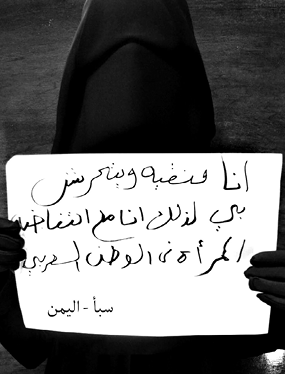 انا منقبه ويتحرش
بي لذلك انا مع انتفاضة
المرأة في الوطن العربي
سبأ - اليمن